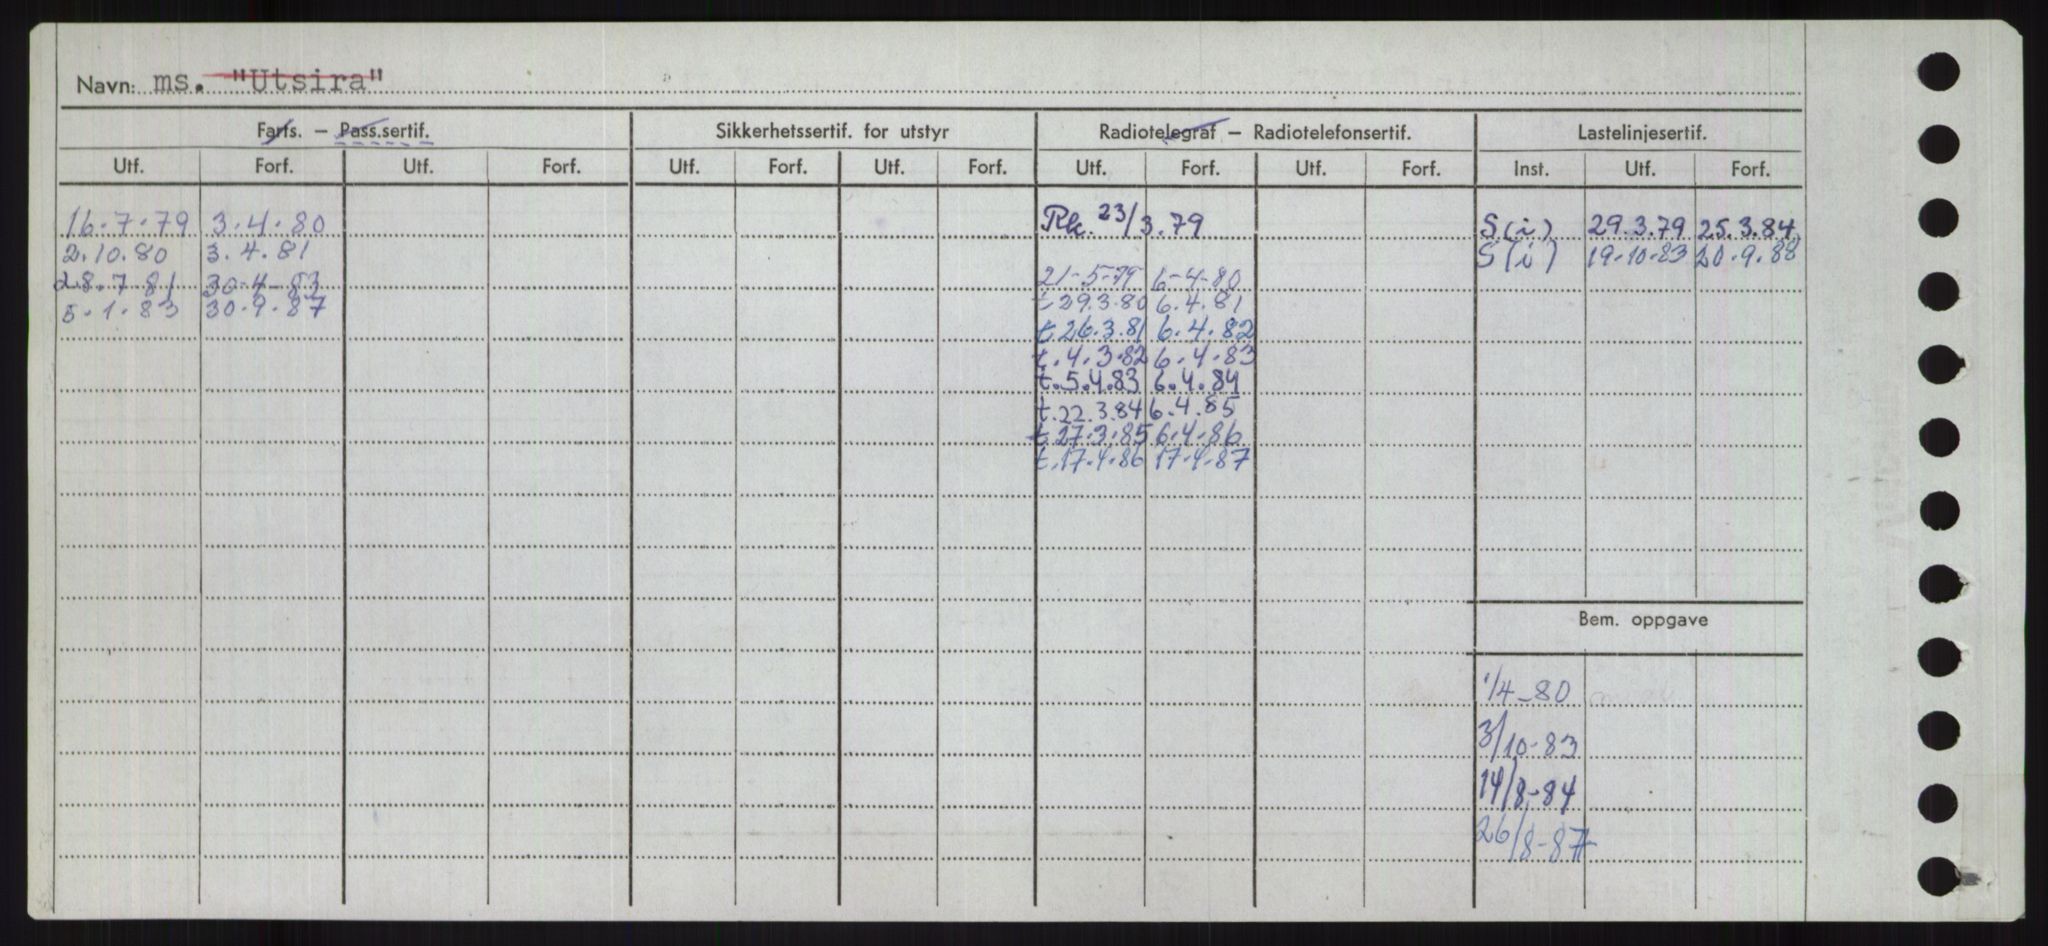 Navn: ms. "Utsira"
Farts. – Pass.sertif. Sikkerhetssertif. for utstyr Radiotelegraf – Radiotelefonsertif. Lastelinjesertif.
Utf. Forf. Utf. Forf. Utf. Forf. Utf. Forf. Utf. Forf. Utf. Forf. Inst. Utf. Forf.
16.7.79 3.4.80 Rk. 23/3.79 S(i) 29.3.79 25.3.84
2.10.80 3.4.81 S(i) 19.10.83 20.9.88
28.7.81 30-4-83 21-5-79 6-4-80
5.1.83 30.9.87 t 29.3.80 6.4.81
t 26.3.81 6.4.82
t.4.3.82 6.4.83
t.5.4.83 6.4.84
t.22.3.84 6.4.85
t 27.3.85 6.4.86
t.17.4.86 17.4.87
Bem. oppgave
1/4-80
3/10-83
14/8-84
26/8-87